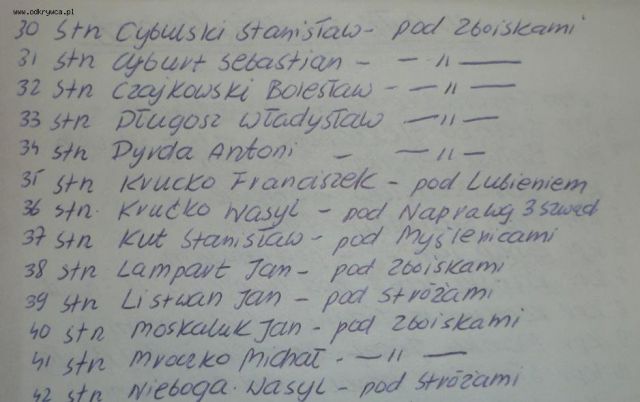 www.odkrywca.pl
30 stn Cybulski Stanisław - pod Zboiskami
31 stn Cyburt Sebastian - — " —
32 stn Czajkowski Bolesław - — " —
33 stn Długosz Władysław — " —
34 stn Dyrda Antoni - — " —
35 stn Krucko Franciszek - pod Lubieniem
36 stn. Kručko Wasyl - pod Naprawą 3 szwad
37 stn Kut Stanisław - pod Myślenicami
38 stn Lampart Jan - pod Zboiskami
39 stn Listwan Jan - pod Stróżami
40 stn Moskaluk Jan - pod Zboiskami
41 stn Mroczko Michał - — " —
42 stn Nieboga. Wasyl - pod Stróżami